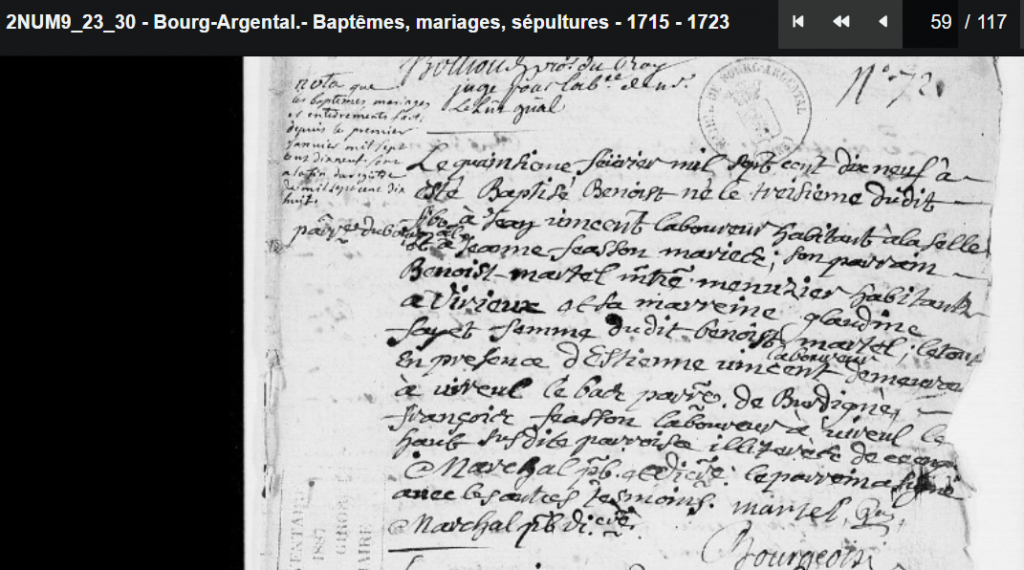 2NUM9_23_30 - Bourg-Argental.- Baptêmes, mariages, sépultures - 1715 - 1723
59 / 117
juge
N° 72
nota que
les baptemes mariages
et enterrements faits
depuis le premier
janvier mil sept
cent dixneuf sont
a la fin du
de mil sept cent dix
huit.
Le quinsieme feuvrier mil sept cent dixneuf à
esté Baptisé Benoist né le treisieme dudit
à Jean vincent laboureur habitant à la selle
et à Jeanne feasson mariecs; son parrain
Benoist martel mtre menuzier habitant
a Virieux et sa marreine glaudine
fayet femme dudit benoist martel; le tout
En presence d'Estienne vincent laboureur demeurant
à vireul le bas parre. de Burdigne,
françois feasson laboureur à vireul le
haut susdite parroise illiterés de
Marchal pb. et vicre. le parrein a signé
avec les autres tesmoins. martel,
Marchal pb vicre.
Bourgeois
MAIRIE DE BOURG-ARGENTAL
INVENTAIRE
1887